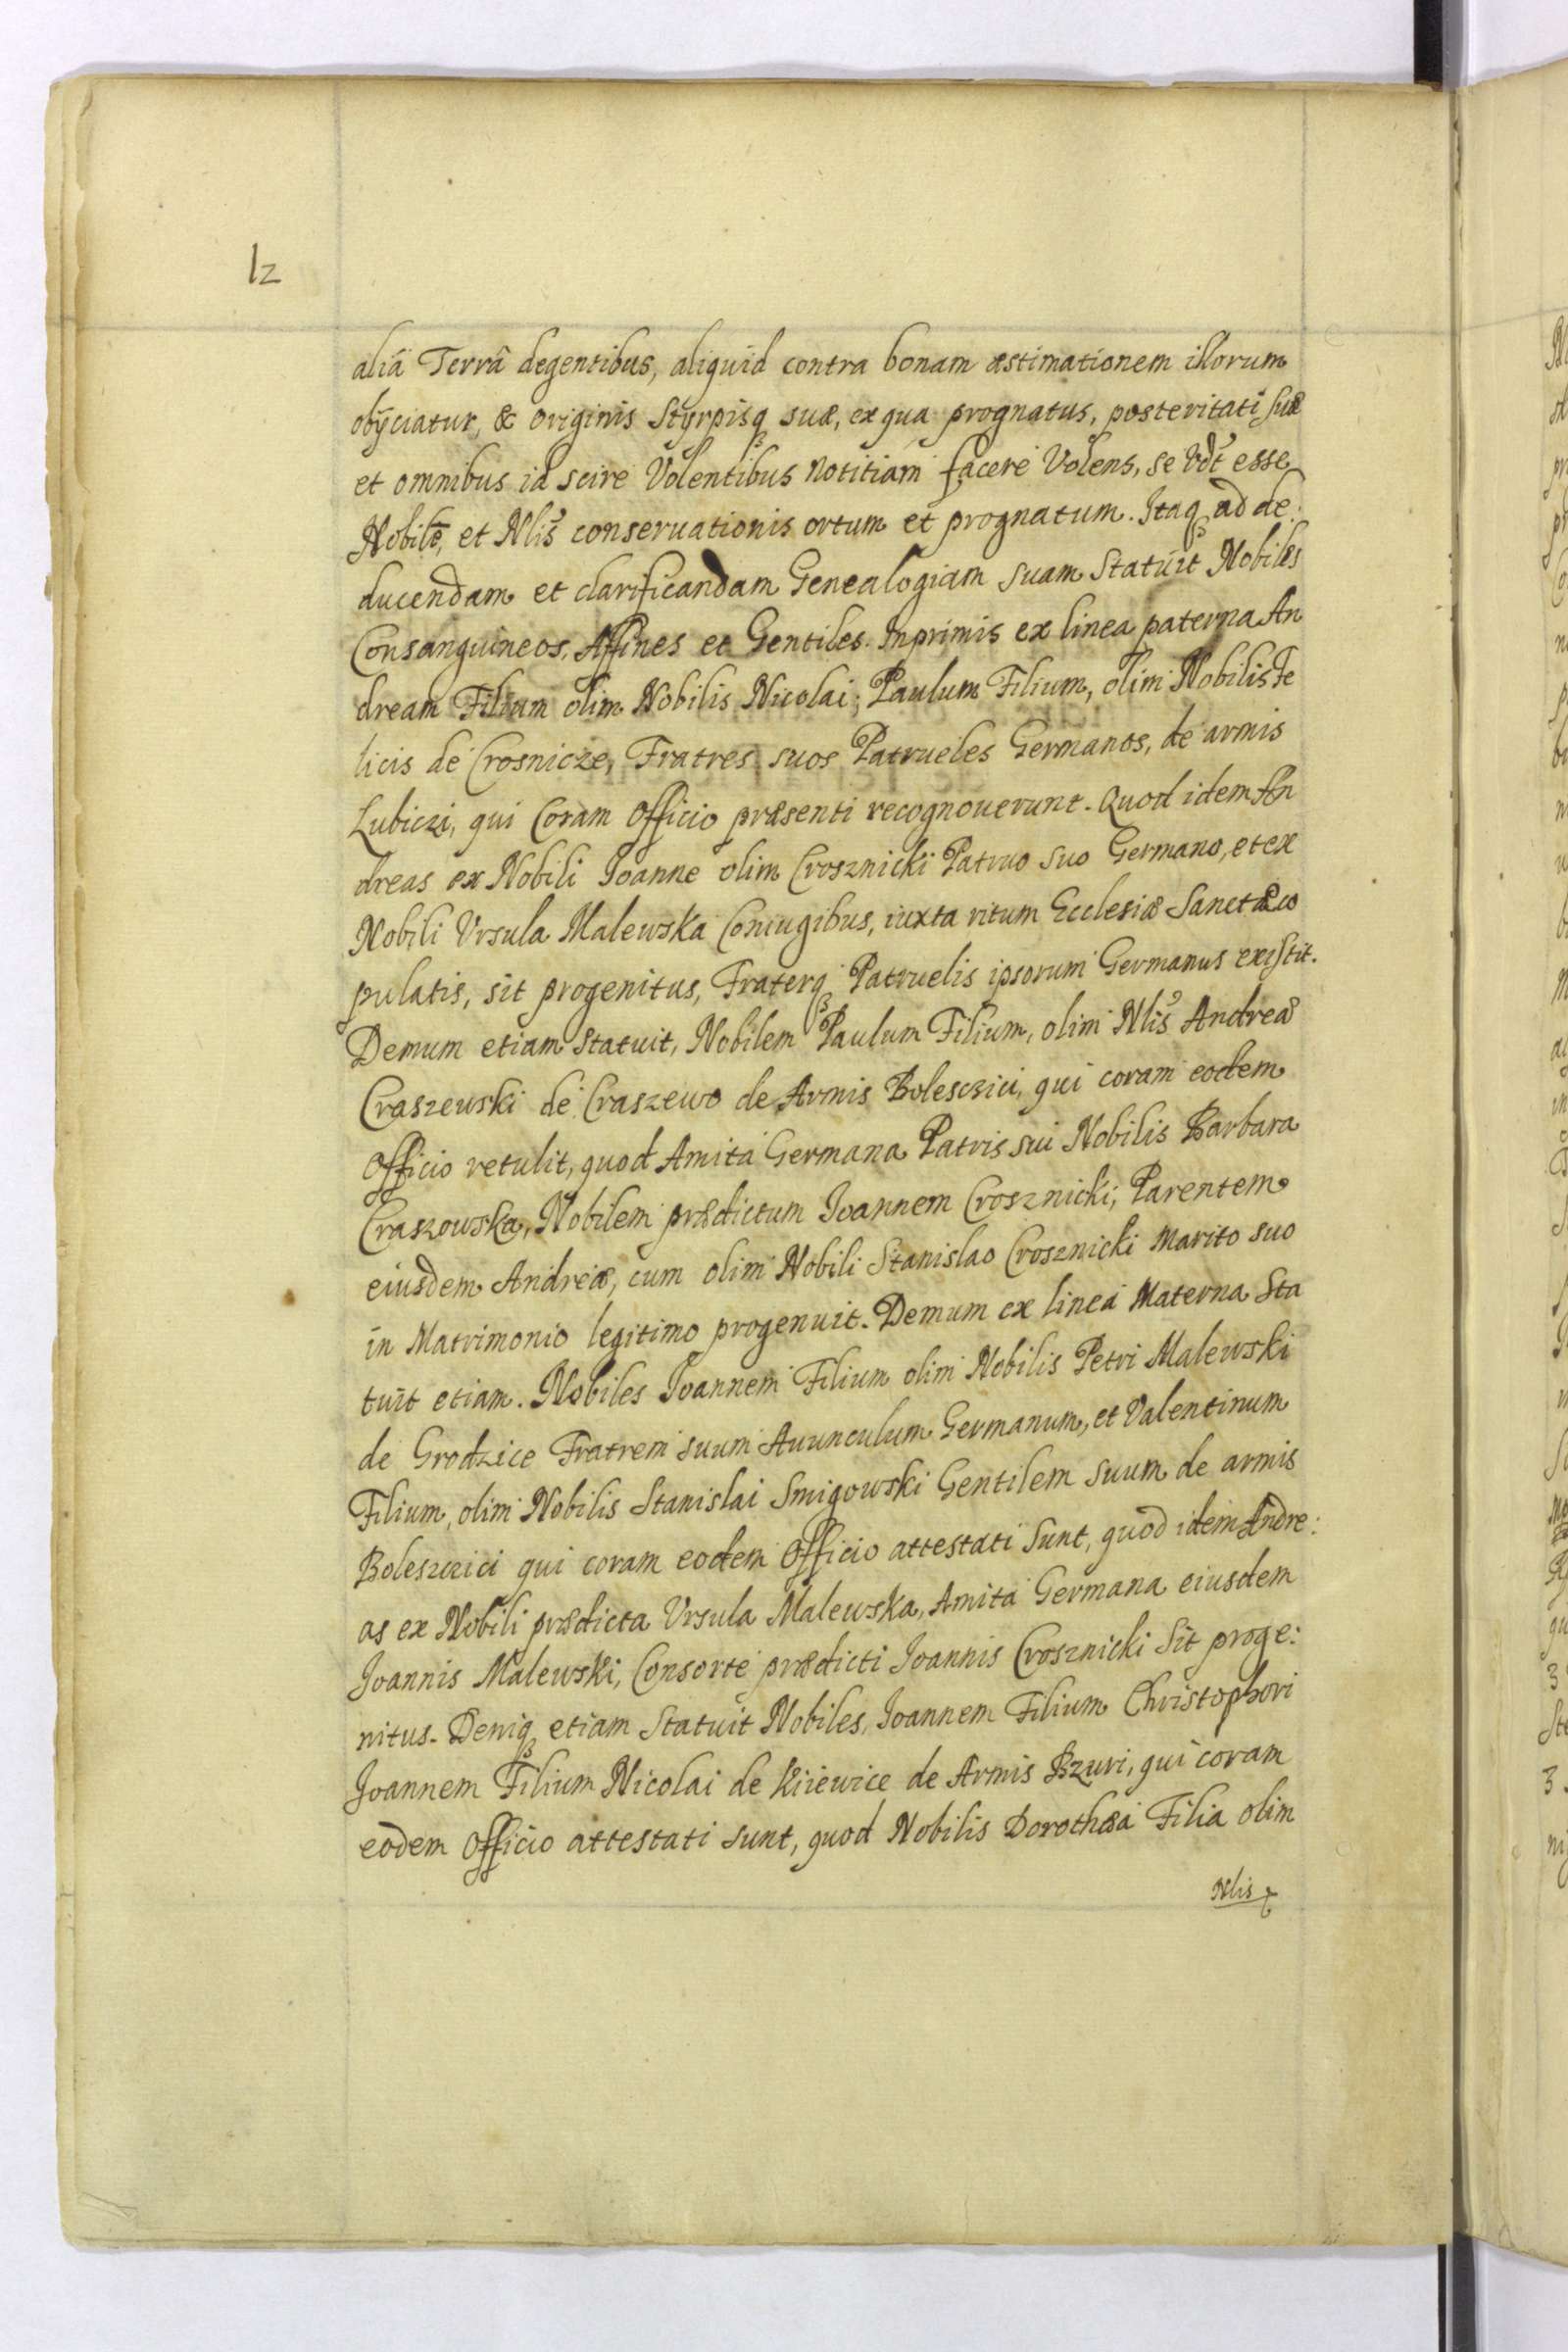 12
aliâ Terrâ degentibus, aliquid contra bonam æstimationem illorum
obÿciatur, & originis Styrpisqꝫ suæ, ex qua prognatus, posteritati suæ
et omnibus id scire Volentibus notitiam facere Volens, se Vdt esse
Nobilē, et Nlis conseruationis ortum et prognatum. Itaqꝫ ad de:
ducendam et clarificandam Genealogiam suam Statuit Nobiles
Consanguineos, Affines et Gentiles. Inprimis ex linea paterna An
dream Filium olim Nobilis Nicolai; Paulum Filium, olim Nobilis Fe
licis de Crosnicze, Fratres suos Patrueles Germanos, de armis
Lubiczi, qui Coram Officio præsenti recognouerunt. Quod idem An
dreas ex Nobili Joanne olim Crosznicki Patruo suo Germano, et ex
Nobili Vrsula Malewska Coniugibus, iuxta ritum Ecclesiæ Sanctæ co
pulatis, sit progenitus, Fraterqꝫ Patruelis ipsorum Germanus existit.
Demum etiam Statuit, Nobilem Paulum Filium, olim Nlis Andreæ
Craszewski de Craszewo de Armis Bolesczici, qui coram eodem
Officio retulit, quod Amita Germana Patris sui Nobilis Barbara
Craszowska, Nobilem prædictum Joannem Crosznicki, Parentem
eiusdem Andreæ, cum olim Nobili Stanislao Crosznicki Marito suo
in Matrimonio legitimo progenuit. Demum ex linea Materna Sta
tuit etiam. Nobiles Joannem Filium olim Nobilis Petri Malewski
de Grodzice Fratrem suum Auunculum Germanum, et Valentinum
Filium, olim Nobilis Stanislai Smigowski Gentilem suum de armis
Boleszczici qui coram eodem Officio attestati Sunt, quod idem Andre:
as ex Nobili prædicta Vrsula Malewska, Amita Germana eiusdem
Joannis Malewski, Consorte prædicti Joannis Crosznicki Sit proge:
nitus. Deniqꝫ etiam Statuit Nobiles, Joannem Filium Christophori
Joannem Filium Nicolai de Kiiewice de Armis Bzuri, qui coram
eodem Officio attestati sunt, quod Nobilis Dorothæa Filia olim
Nlis